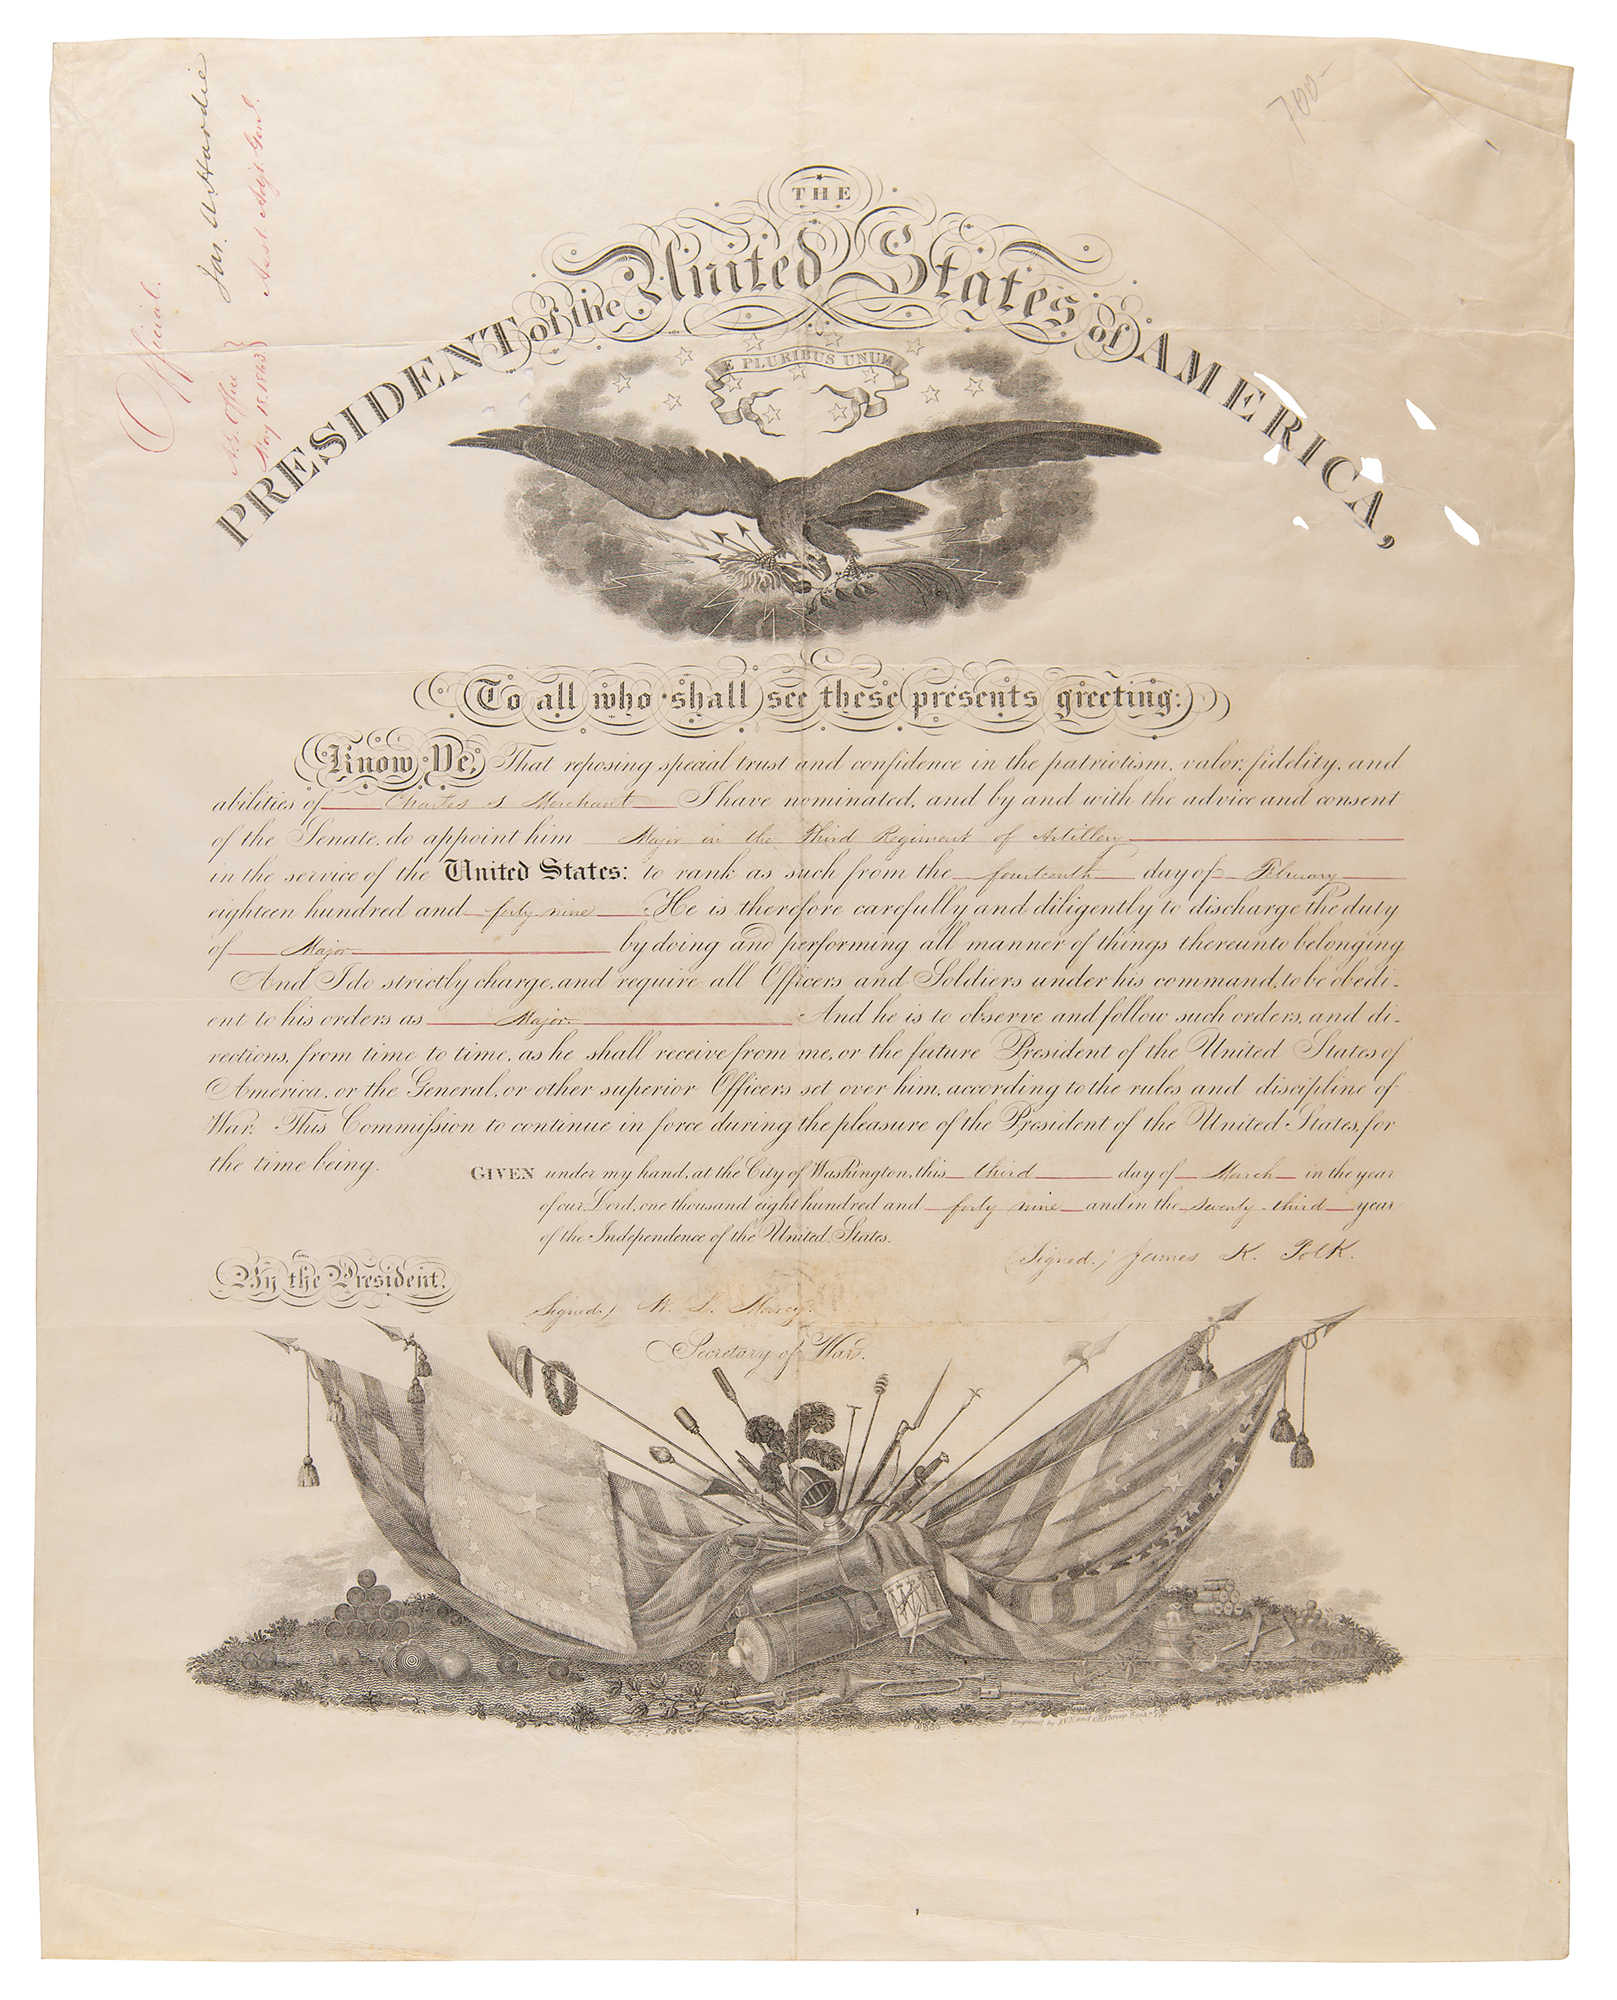 Official.
A. G. Office }
May 18, 1863 }
Jas. A. Hardie
Asst. Adjt. Genl.
700-
THE
PRESIDENT of the United States of AMERICA,
E PLURIBUS UNUM
To all who shall see these presents greeting:
Know Ye, That reposing special trust and confidence in the patriotism, valor, fidelity, and
abilities of Charles S Merchant I have nominated, and by and with the advice and consent
of the Senate, do appoint him Major in the Third Regiment of Artillery
in the service of the United States: to rank as such from the fourteenth day of February
eighteen hundred and forty nine. He is therefore carefully and diligently to discharge the duty
of Major by doing and performing all manner of things thereunto belonging.
And I do strictly charge, and require all Officers and Soldiers under his command, to be obedi-
ent to his orders as Major. And he is to observe and follow such orders, and di-
rections, from time to time, as he shall receive from me, or the future President of the United States of
America, or the General, or other superior Officers set over him, according to the rules and discipline of
War. This Commission to continue in force during the pleasure of the President of the United States, for
the time being.
GIVEN under my hand, at the City of Washington, this third day of March in the year
of our Lord, one thousand eight hundred and forty nine and in the seventy-third year
of the Independence of the United States.
(Signed.) James K. Polk.
By the President.
Signed.) W. L. Marcy.
Secretary of War.
Engraved by